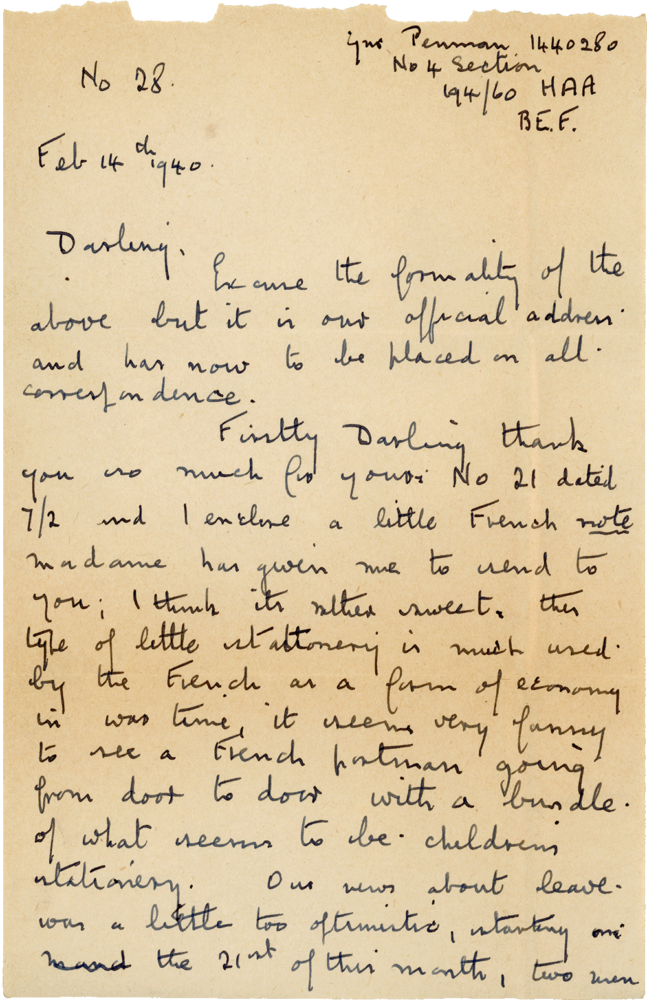 Gnr Penman 1440280
No 4 Section
194/60 HAA
B.E.F.
No 28.
Feb 14th 1940.
Darling,
Excuse the formality of the
above but it is our official address
and has now to be placed on all
correspondence.
Firstly Darling thank
you so much for yours No 21 dated
7/2 and I enclose a little French note
madame has given me to send to
you; I think its rather sweet, this
type of little stationery is much used
by the French as a form of economy
in war time, it seems very funny
to see a French postman going
from door to door with a bundle
of what seems to be childrens
stationery. Our news about leave
was a little too optimistic, starting on
the 21st of this month, two men